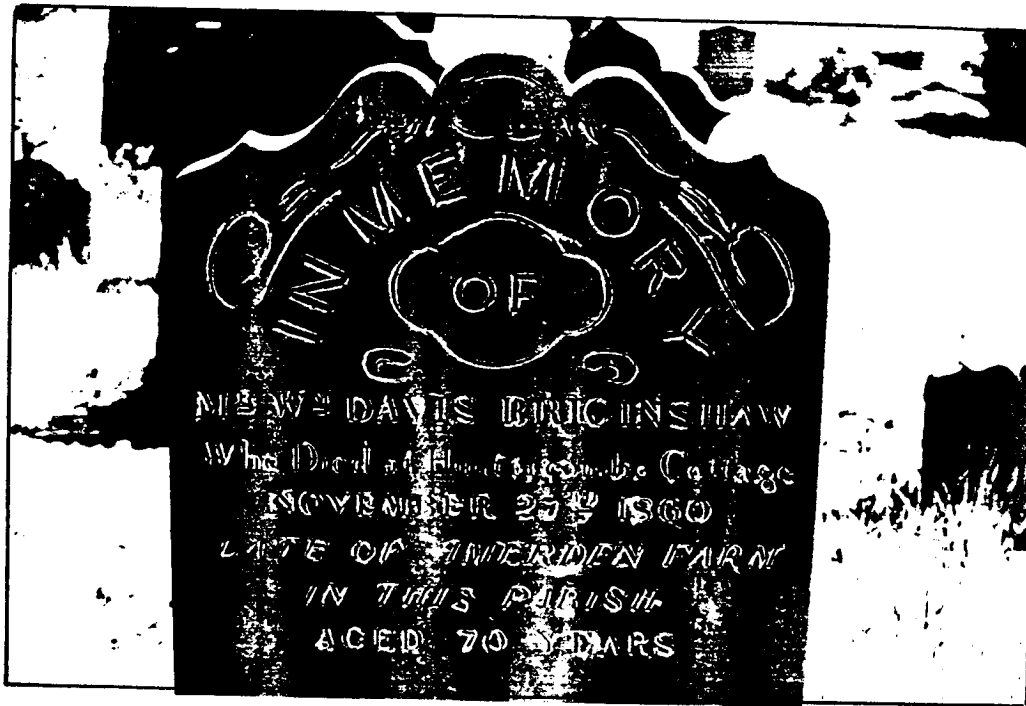 IN MEMORY
OF
Mr Wm DAVIS BRICINSHAW
Who Died at Cottage
NOVEMBER 27th 1860
LATE OF AMERDEN FARM
IN THIS PARISH
AGED 70 YEARS